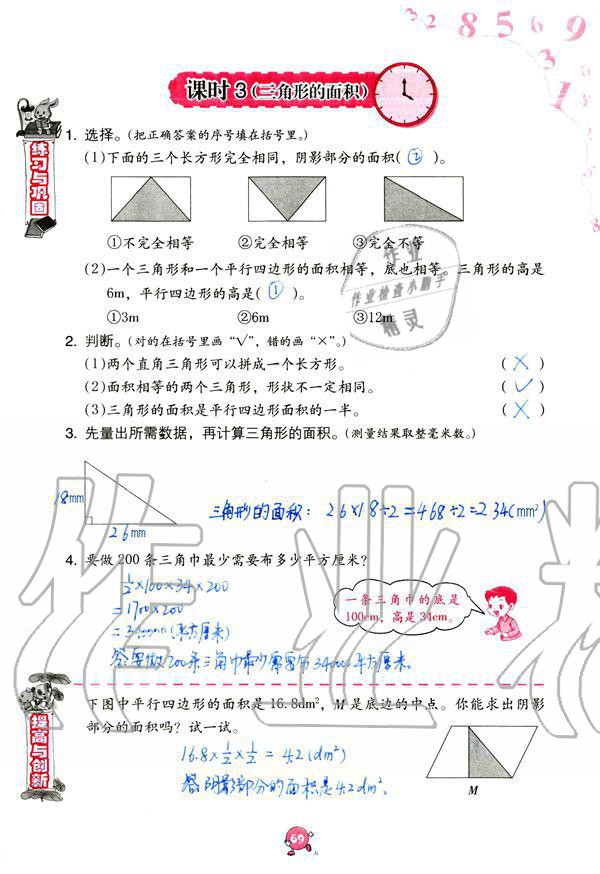 3 2 8 5 6 9
3
1
课时 3(三角形的面积)
练习与巩固
1. 选择。(把正确答案的序号填在括号里。)
(1)下面的三个长方形完全相同，阴影部分的面积( ② )。
①不完全相等 ②完全相等 ③完全不等
(2)一个三角形和一个平行四边形的面积相等，底也相等。三角形的高是
6m，平行四边形的高是( ① )。
①3m ②6m ③12m
作业
作业检查小助手
精灵
2. 判断。(对的在括号里画“√”，错的画“×”。)
(1)两个直角三角形可以拼成一个长方形。 ( × )
(2)面积相等的两个三角形，形状不一定相同。 ( √ )
(3)三角形的面积是平行四边形面积的一半。 ( × )
3. 先量出所需数据，再计算三角形的面积。(测量结果取整毫米数。)
18mm
三角形的面积：26×18÷2=468÷2=234(mm²)
26mm
4. 要做200条三角巾最少需要布多少平方厘米？
½×100×34×200
=1700×200
(平方厘米)
一条三角巾的底是
100cm，高是34cm。
答：要做200条三角巾最少需要布平方厘米。
提高与创新
下图中平行四边形的面积是16.8dm²，M是底边的中点。你能求出阴影
部分的面积吗？试一试。
16.8×½×½=4.2(dm²)
答：阴影部分的面积是4.2dm²。
M
69
作业精灵